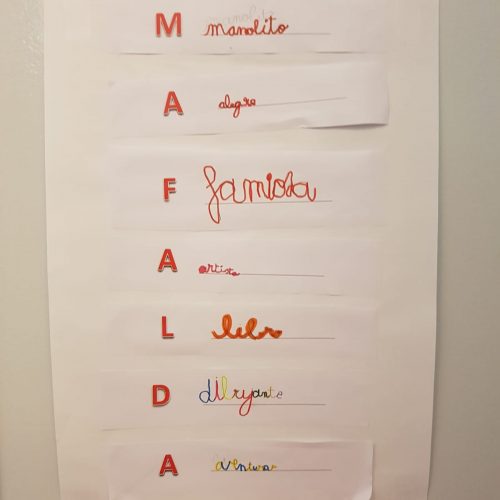 M manolito
A alegre
F famosa
A artista
L lelr
D dibyante
A aventurar